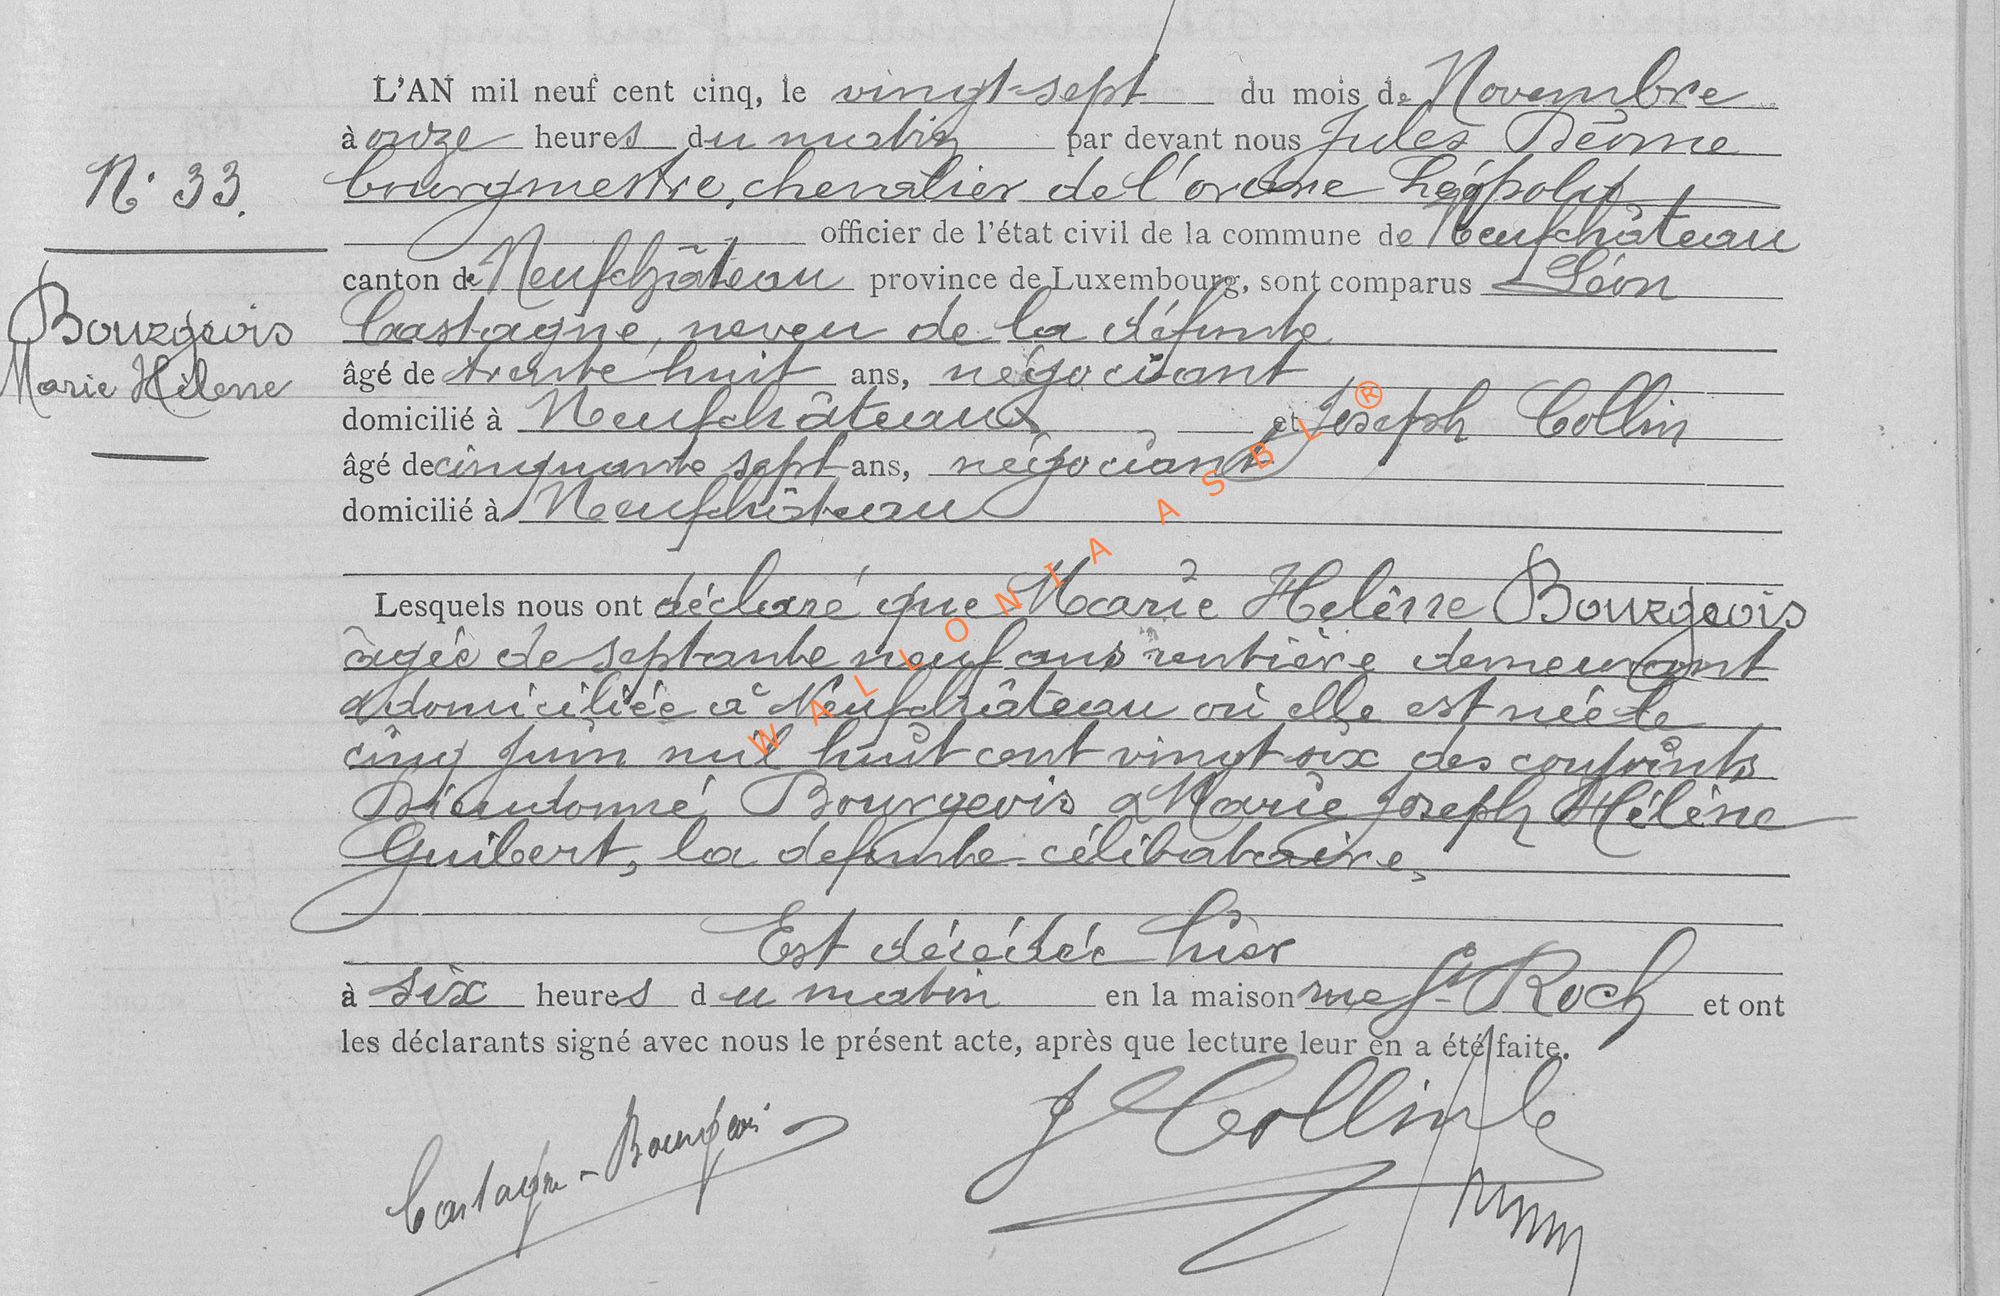 L'AN mil neuf cent cinq, le vingt-sept du mois de Novembre
à onze heures du matin par devant nous Jules Déome
bourgmestre, chevalier de l'ordre Léopold
officier de l'état civil de la commune de Neufchâteau
canton de Neufchâteau province de Luxembourg, sont comparus Léon
Castagne, neveu de la défunte
âgé de trente huit ans, négociant
domicilié à Neufchâteau et Joseph Collin
âgé de cinquante sept ans, négociant
domicilié à Neufchâteau
Lesquels nous ont déclaré que Marie Helène Bourgeois
âgée de septante neuf ans rentière demeurant
& domiciliée à Neufchâteau où elle est née le
cinq juin mil huit cent vingt six des conjoints
Dieudonné Bourgeois & Marie Joseph Hélène
Guibert, la defunte célibataire,
Est décédée hier
à six heures du matin en la maison rue St Roch et ont
les déclarants signé avec nous le présent acte, après que lecture leur en a été faite.
N° 33.
Bourgeois
Marie Hélène
Castagne-Bourgeois
J Collin
WALLONIA ASBL ®